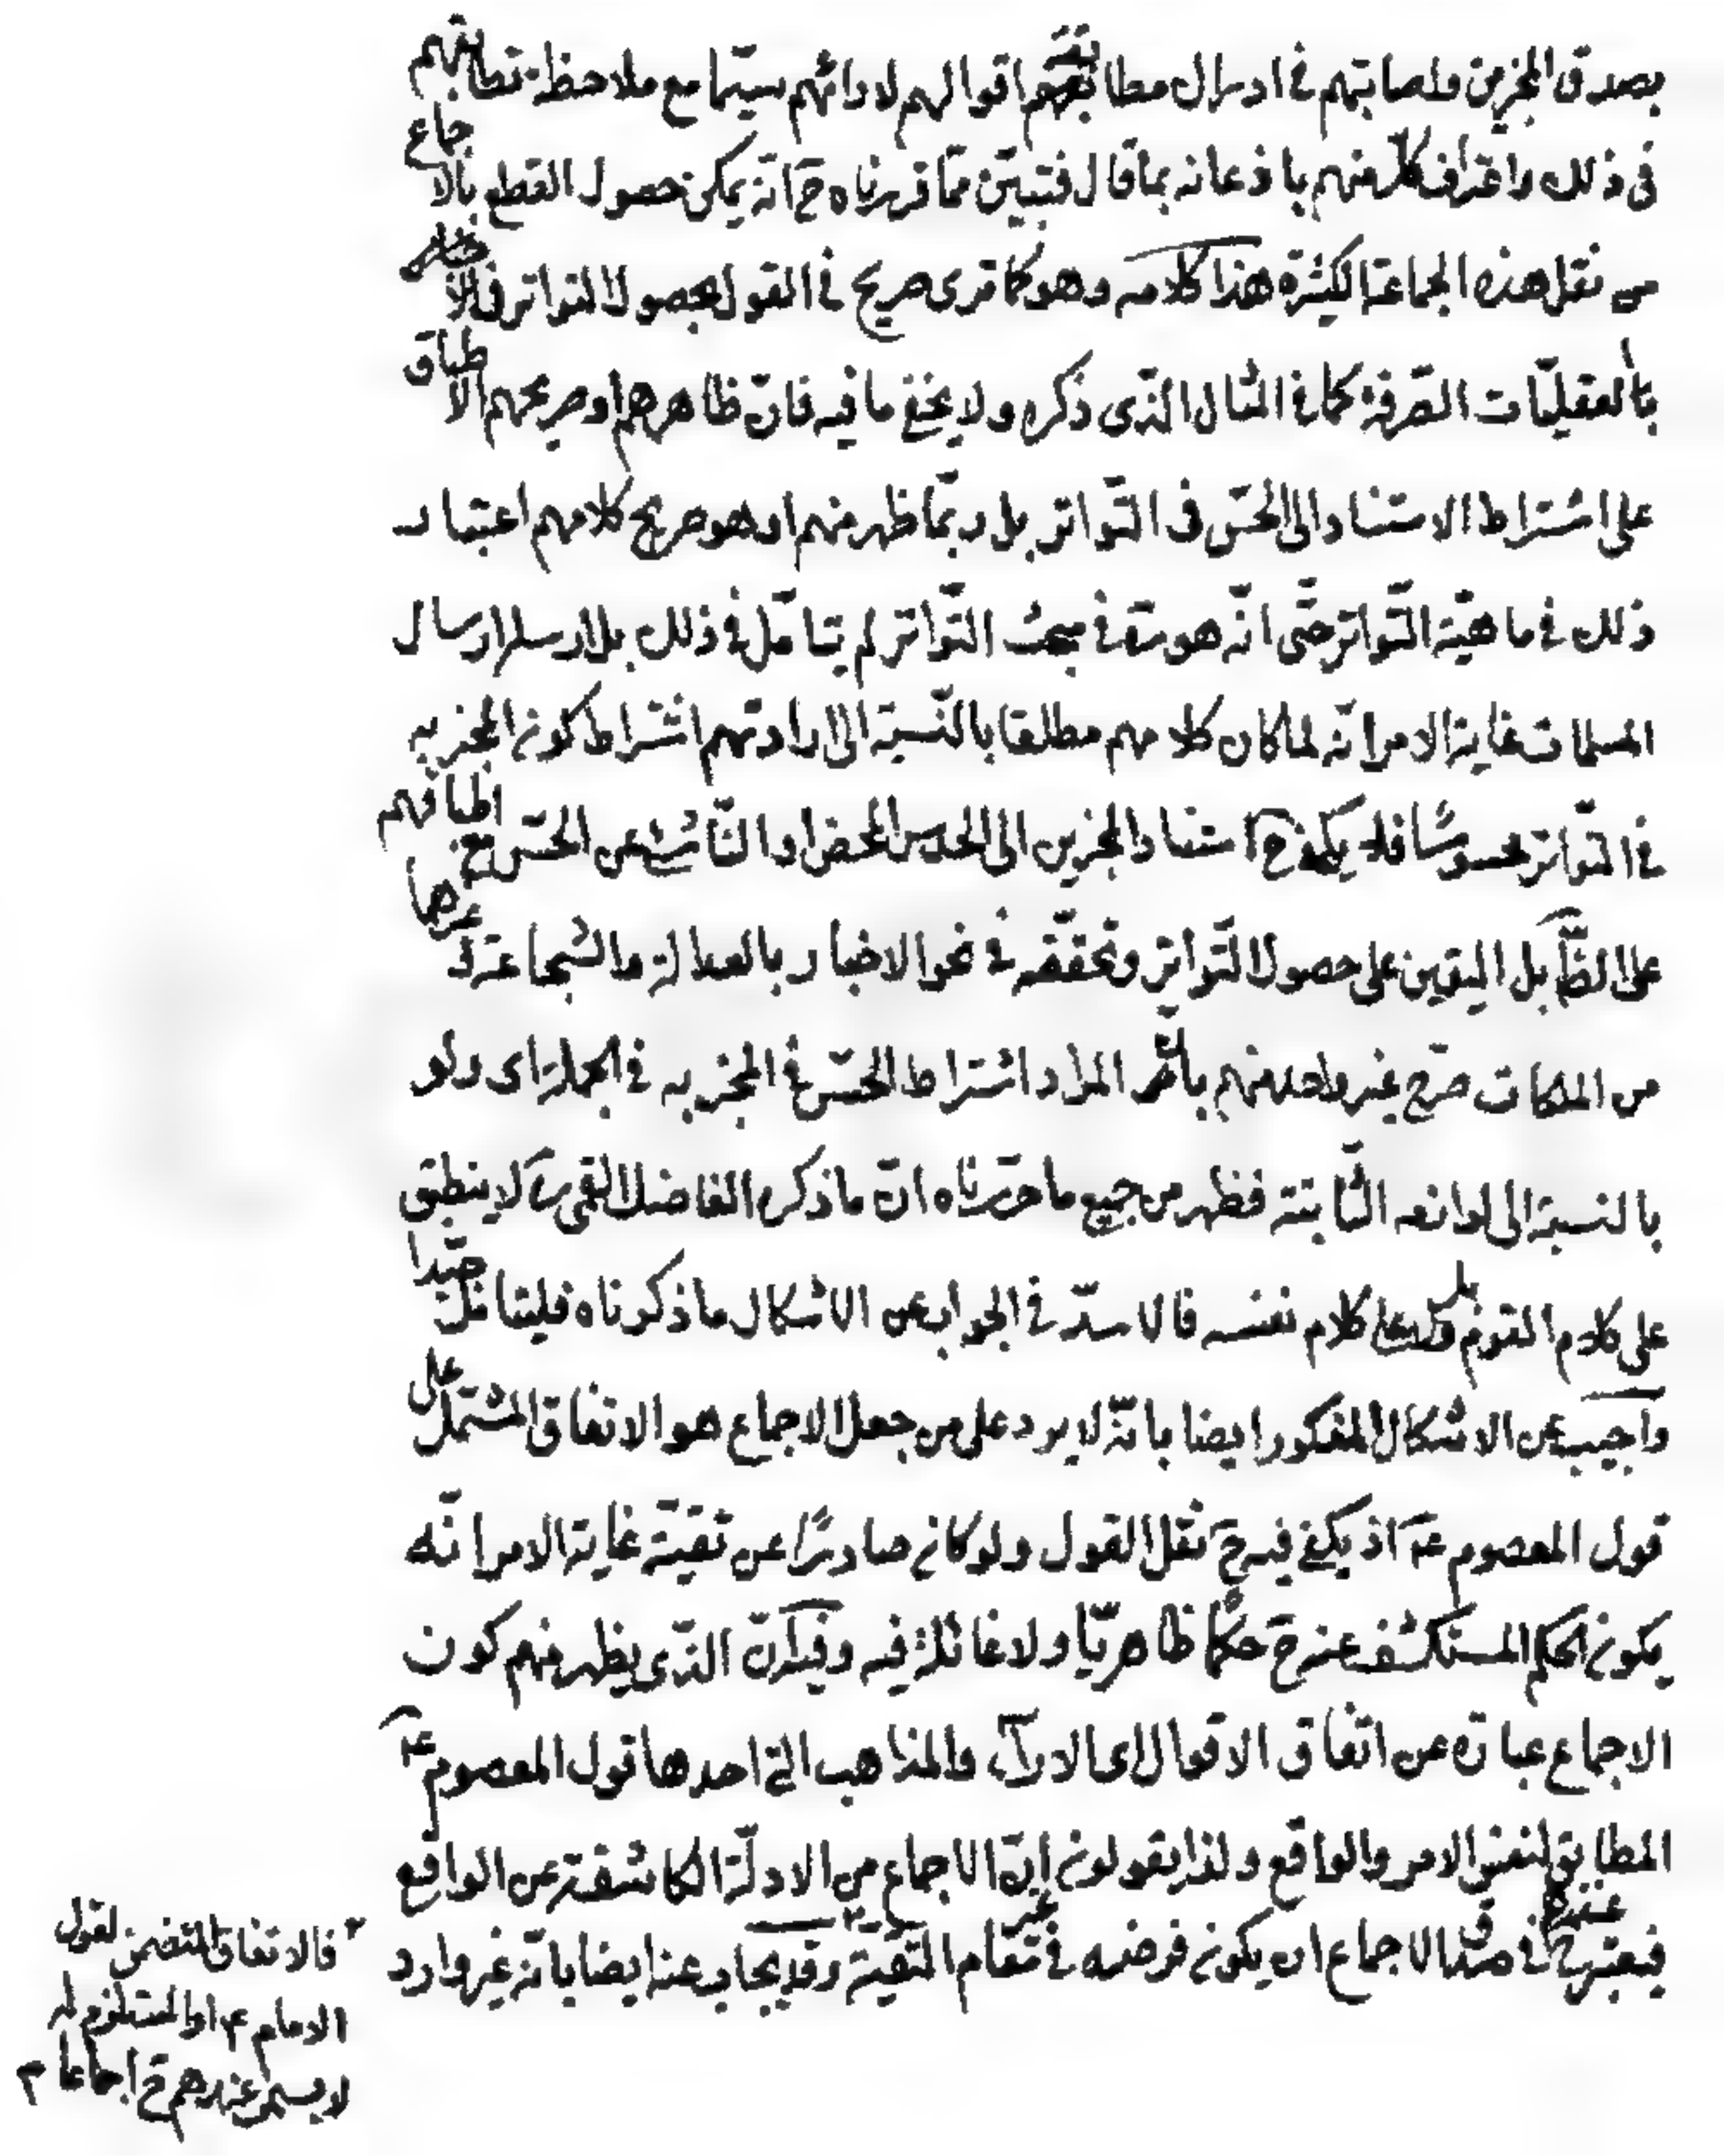 بصدق المخبرين واصابتهم فى ادراك مطابقة اقوالهم لارائهم سيّما مع ملاحظة تطابقهم
فى ذلك واعتراف كلّ منهم باذعانه بما قال فتبيّن ممّا قرّرناه ح انّه يمكن حصول القطع بالاجماع
من نقل هذه الجماعة الكثيرة هذا كلامه وهو كما ترى صريح فى القول بحصول التواتر فى الاخبار
بالعقليّات الصّرفة كما فى المثال الّذى ذكره ولا يخفى ما فيه فانّ ظاهرهم او صريحهم الاطباق
على اشتراط الاستناد الى الحسّ فى التّواتر بل ربّما ظهر منهم او هو صريح كلامهم اعتبار
ذلك فى ماهيّة التّواتر حتّى انّه هو ره فى مبحث التّواتر لم يتامّل فى ذلك بل ارسله ارسال
المسلمات غاية الامر انّه لما كان كلامهم مطلقا بالنّسبة الى ارادتهم اشتراط كون المخبر به
فى التّواتر محسوسًا فلا يكون ح استناد المخبرين الى الحدس المحض او النّاشئ عن الحسّ مع اطباقهم
على الظّ بل اليقين على حصول التّواتر وتحقّقه فى نحو الاخبار بالعدالة والشّجاعة وغيرها
من الملكات صرّح غير واحد منهم بانّ المراد اشتراط الحسّ فى المخبر به فى الجملة اى ولو
بالنسبة الى لوازمه الثّابتة فظهر من جميع ما حرّرناه انّ ما ذكره الفاضل القمى ره لا ينطبق
على كلام القوم بل على كلام نفسه فالاسدّ فى الجواب عن الاشكال ما ذكرناه فليتامّل جيّدا
واجيب عن الاشكال المذكور ايضا بانّه لا يرد على من جعل الاجماع هو الاتفاق المشتمل على
قول المعصوم عه اذ يكفى فيه ح نقل القول ولو كان صادرًا عن تقيّة غاية الامر انّه
يكون الحكم المستكشف عنه ح حكمًا ظاهريّا ولا غائلة فيه وفيه انّ الّذى يظهر منهم كون
الاجماع عبارة عن اتفاق الاقوال اى الاراء والمذاهب التى احدها قول المعصوم عه
المطابق لنفس الامر والواقع ولذا يقولون انّ الاجماع من الادلّة الكاشفة عن الواقع
فيعتبر ح عندهم فى صدق الاجماع ان يكون فرضه فى غير مقام التقيّة وقد يجاب عنه ايضا بانّه غير وارد
فالاتفاق المتضمن لقول
الامام ع او المستلزم له
لا يسمى عندهم ح اجماعا